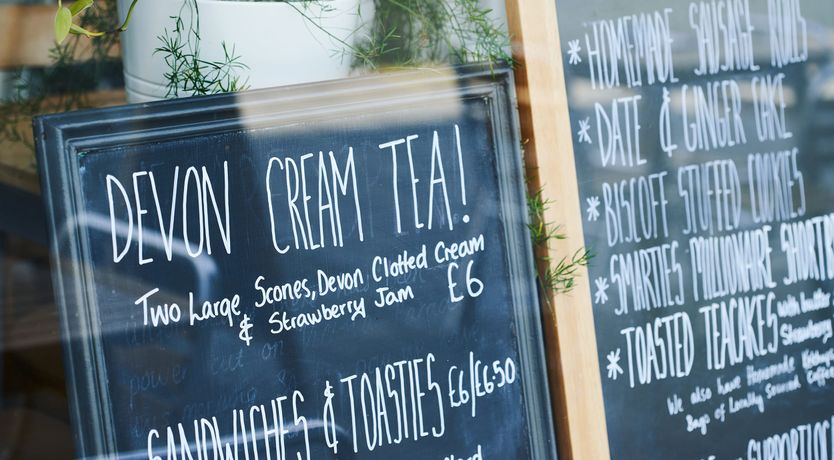 DEVON CREAM TEA!
Two Large Scones, Devon Clotted Cream
& Strawberry Jam £6
SANDWICHES & TOASTIES £6/£6.50
* HOMEMADE SAUSAGE ROLLS
* DATE & GINGER CAKE
* BISCOFF STUFFED COOKIES
* SMARTIES MILLIONAIRE SHORT
* TOASTED TEACAKES with butter
Strawberry
We also have Homemade
Bags of Locally Sourced